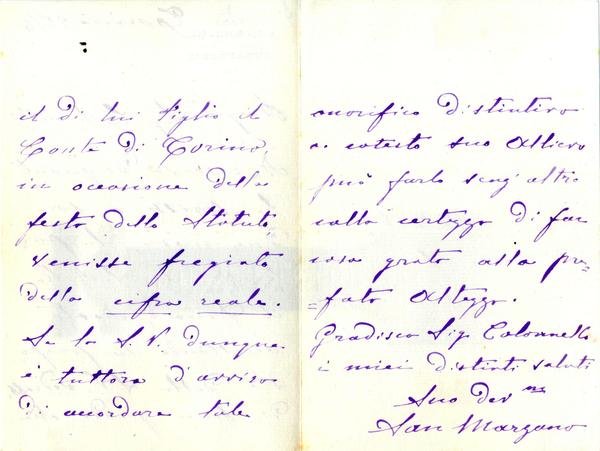 il di lui Figlio il
Conte di Torino,
in occasione della
festa dello Statuto,
venisse fregiato
della cifra reale.
Se la S. V. dunque
è tuttora d'avviso
di accordare tale
onorifico distintivo
a cotesto suo Allievo
può farlo senz'altro
colla certezza di far
cosa grata alla pre=
=fata Altezza.
Gradisca Sig. Colonnello
i miei distinti saluti
Suo dev.mo
San Marzano